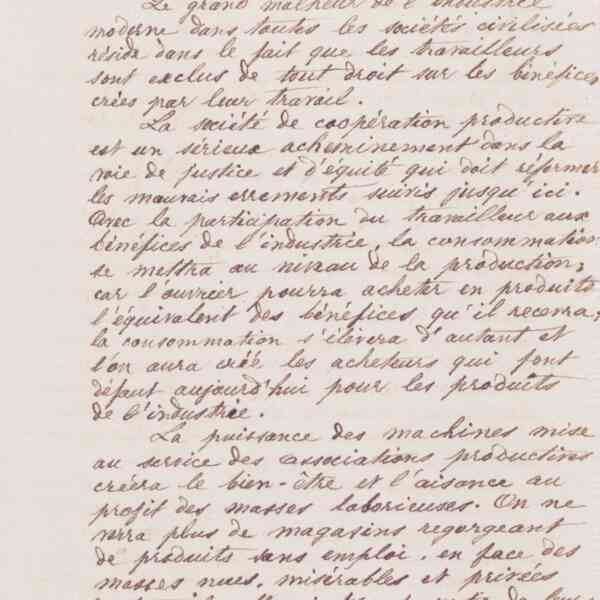 Le grand malheur de l'industrie
moderne dans toutes les sociétés civilisées
réside dans le fait que les travailleurs
sont exclus de tout droit sur les bénéfices
créés par leur travail.
La société de coopération productive
est un sérieux acheminement dans la
voie de justice et d'équité qui doit réformer
les mauvais errements suivis jusqu'ici.
Avec la participation du travailleur aux
bénéfices de l'industrie, la consommation
se mettra au niveau de la production;
car l'ouvrier pourra acheter en produits
l'équivalent des bénéfices qu'il recevra;
la consommation s'élèvera d'autant et
l'on aura créé les acheteurs qui font
défaut aujourd'hui pour les produits
de l'industrie.
La puissance des machines mise
au service des associations productives
créera le bien-être et l'aisance au
profit des masses laborieuses. On ne
verra plus de magasins regorgeant
de produits sans emploi, en face des
masses nues, misérables et privées